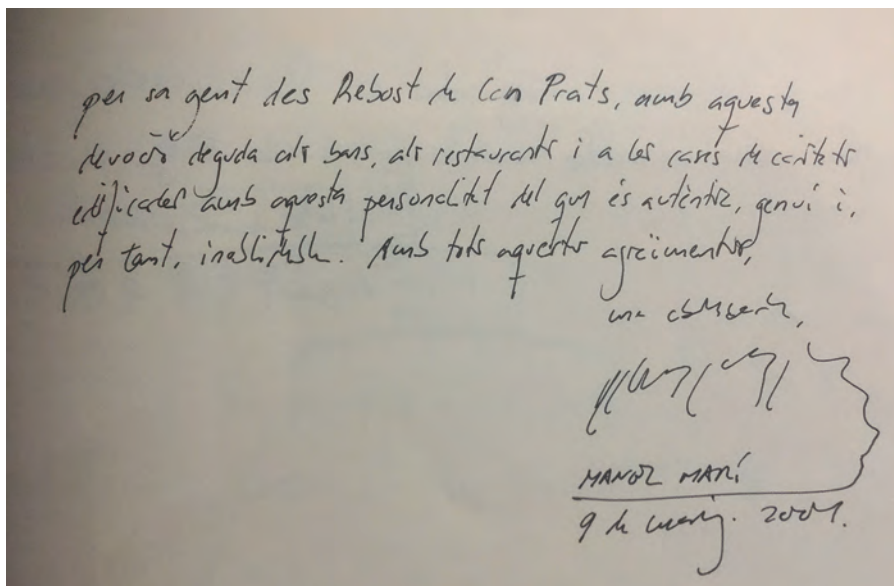 per sa gent des Rebost de Can Prats, amb aquesta
devoció deguda als bars, als restaurants i a les cases de
edificades amb aquesta personalitat del que és autèntic, genuí i,
per tant, inoblidable. Amb tots aquests agraïments,
una abraçada,
MANEL MARÍ
9 de maig. 2009.